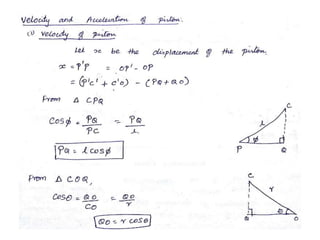 Velocity and Acceleration of piston.
(i) Velocity of Piston
Let x be the displacement of the piston.
x = P'P = OP' - OP
= (P'C' + C'O) - (PQ + QO)
From Δ CPQ
Cosϕ = PQ/PC = PQ/l
PQ = l cosϕ
C
l
ϕ
P Q
From Δ COQ,
Cosθ = QO/CO = QO/r
QO = r cosθ
C
r
θ
Q O